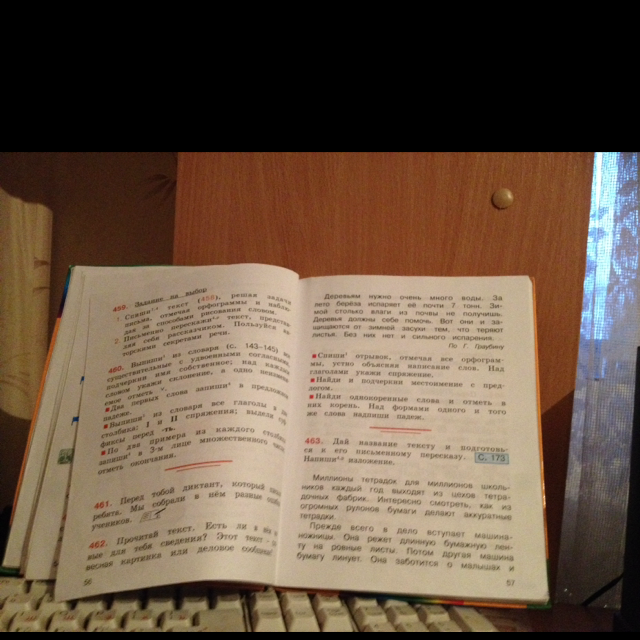 459. Задание на выбор
1. Спиши текст (458), решая задачи
письма, отмечая орфограммы и наблю-
дая за способами рисования словом.
2. Письменно перескажи текст, представ-
себя рассказчиком. Пользуйся
секретами речи.
460. Выпиши из словаря (с. 143–145)
существительные с удвоенными согласными,
подчеркни имя собственное; над каждым
словом укажи склонение, а одно
отметь
Два первых слова запиши в предложном
падеже.
Выпиши из словаря все глаголы в два
столбика: I и II спряжения; выдели суф-
фиксы перед -ть.
По два примера из каждого столбика
запиши в 3-м лице множественного числа,
отметь окончания.
461. Перед тобой диктант, который писали
ребята. Мы собрали в нём разные ошибки
учеников.
462. Прочитай текст. Есть ли в нём но-
вые для тебя сведения? Этот текст - сло-
весная картинка или деловое сообщение?
56
Деревьям нужно очень много воды. За
лето берёза испаряет её почти 7 тонн. Зи-
мой столько влаги из почвы не получишь.
Деревья должны себе помочь. Вот они и за-
щищаются от зимней засухи тем, что теряют
листья. Без них нет и сильного испарения.
По Г. Граубину
Спиши отрывок, отмечая все орфограм-
мы, устно объясняя написание слов. Над
глаголами укажи спряжение.
Найди и подчеркни местоимение с пред-
логом.
Найди однокоренные слова и отметь в
них корень. Над формами одного и того
же слова надпиши падеж.
463. Дай название тексту и подготовь-
ся к его письменному пересказу. С. 173
Напиши изложение.
Миллионы тетрадок для миллионов школь-
ников каждый год выходят из цехов тетра-
дочных фабрик. Интересно смотреть, как из
огромных рулонов бумаги делают аккуратные
тетрадки.
Прежде всего в дело вступает машина-
ножницы. Она режет длинную бумажную лен-
ту на ровные листы. Потом другая машина
бумагу линует. Она заботится о малышах и
57